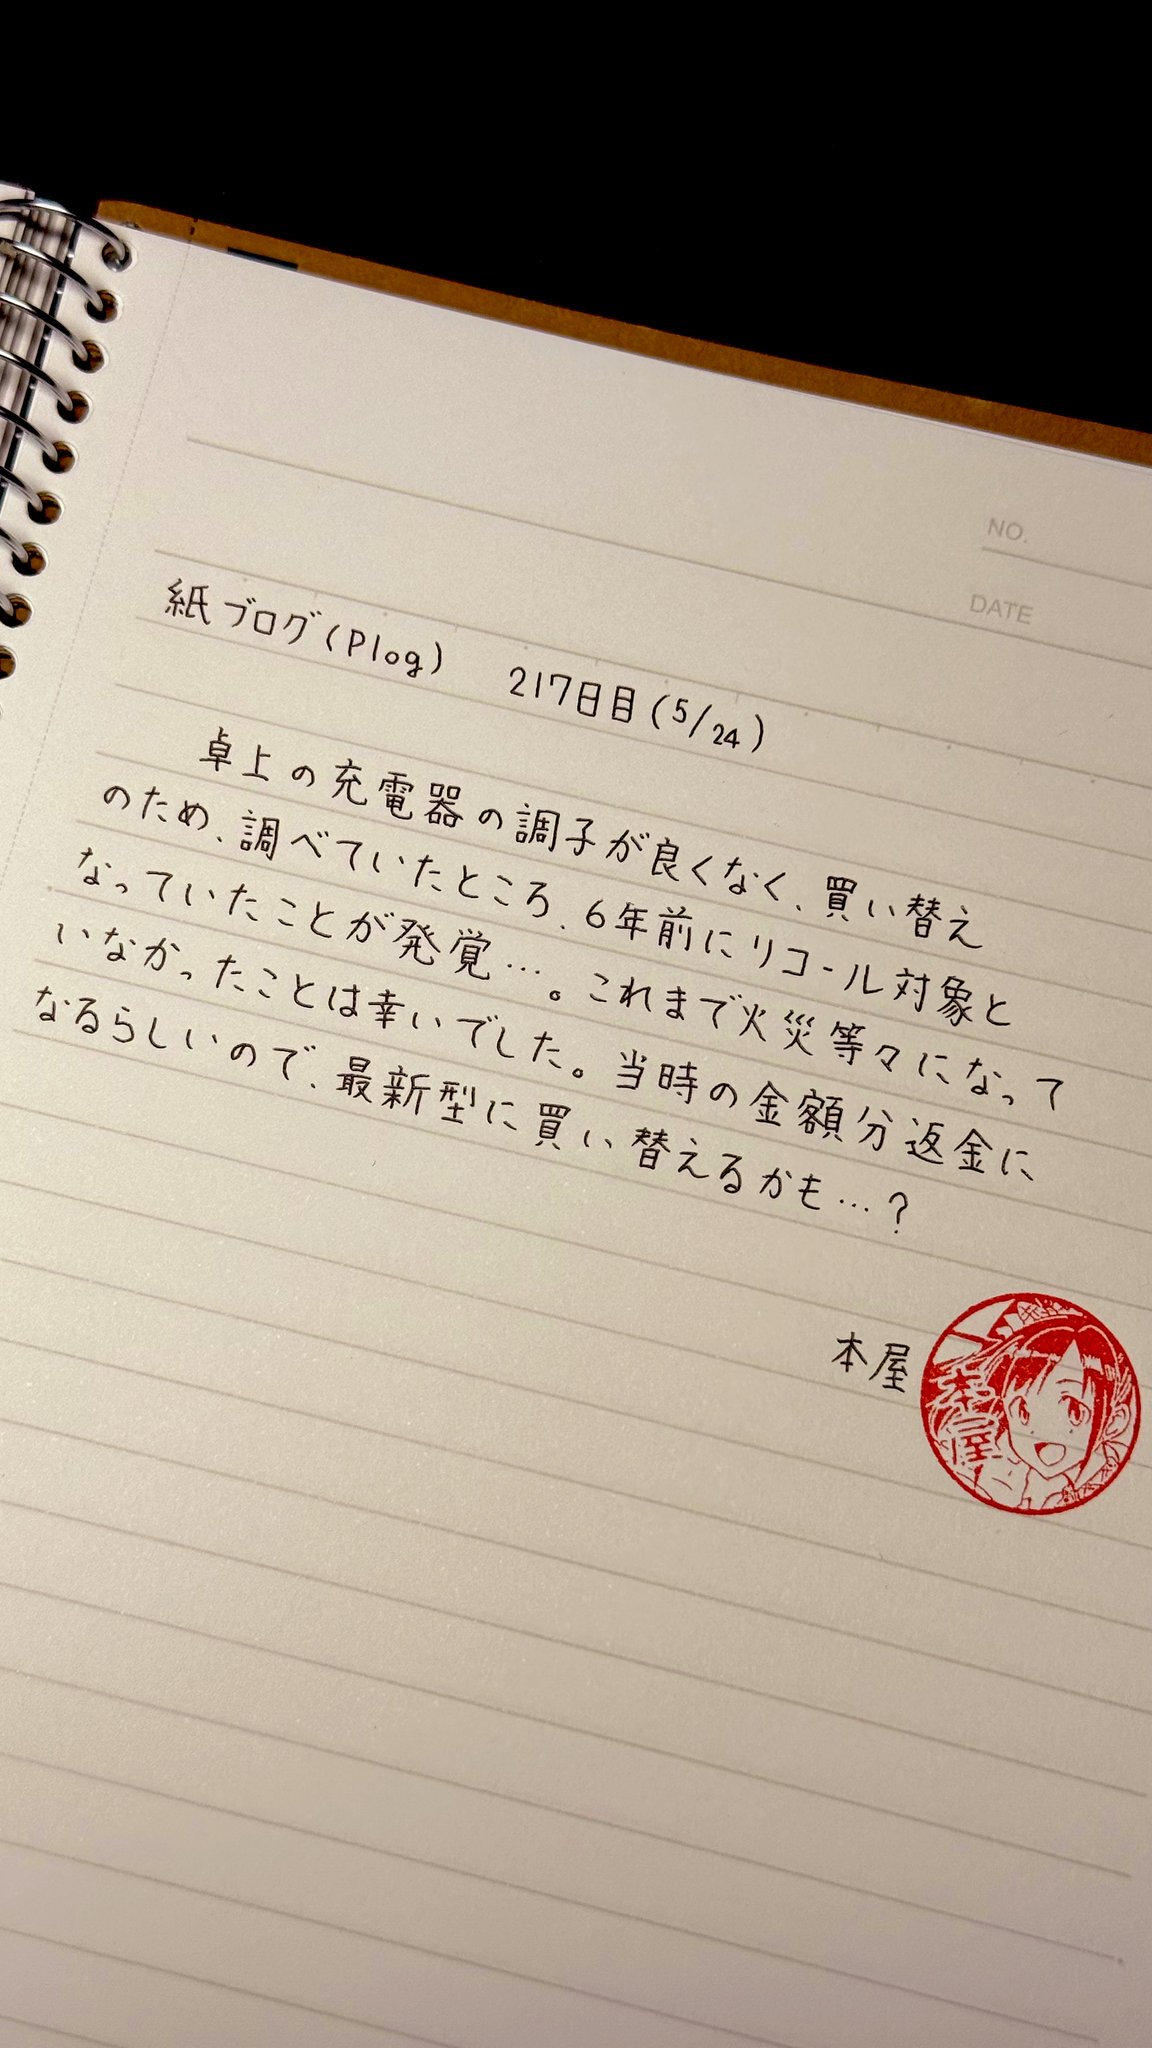 NO.
DATE
紙ブログ(Plog) 217日目(5/24)
卓上の充電器の調子が良くなく、買い替え
のため、調べていたところ、6年前にリコール対象と
なっていたことが発覚…。これまで火災等々になって
いなかったことは幸いでした。当時の金額分返金に
なるらしいので、最新型に買い替えるかも…?
本屋
本屋